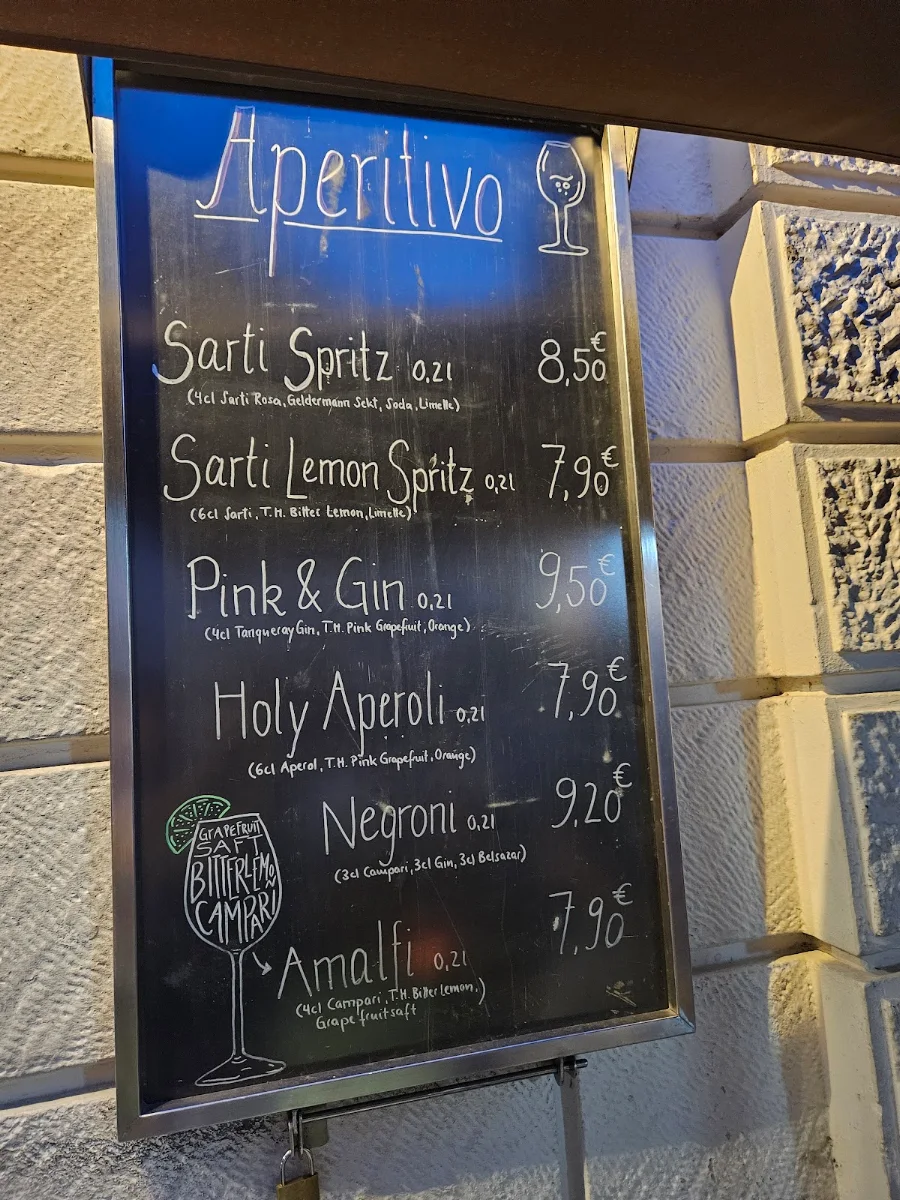 Aperitivo
Sarti Spritz 0,2l 8,50€
(4cl Sarti Rosa, Geldermann Sekt, Soda, Limette)
Sarti Lemon Spritz 0,2l 7,90€
(6cl Sarti, T.H. Bitter Lemon, Limette)
Pink & Gin 0,2l 9,50€
(4cl Tanqueray Gin, T.H. Pink Grapefruit, Orange)
Holy Aperoli 0,2l 7,90€
(6cl Aperol, T.H. Pink Grapefruit, Orange)
Negroni 0,2l 9,20€
(3cl Campari, 3cl Gin, 3cl Belsazar)
GRAPEFRUIT
SAFT
BITTERLEMON
CAMPARI
Amalfi 0,2l 7,90€
(4cl Campari, T.H. Bitter Lemon,)
Grapefruitsaft